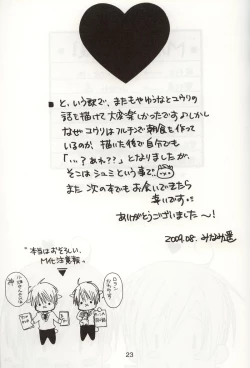 ■ と、いう訳で、またもやゆうなとユウリの
話を描けて大変楽しかったですよしかし
なぜコウリはフルチンで朝食を作って
いるのか、描いた後で自分でも
「…？あれ？？」となりましたが、
そこはシュミという事で
また次の本でもお会いできたら
幸いです。
ありがとうございました～！
2009.08. みなみ遥
"本当はおそろしい
M化注意報"
23